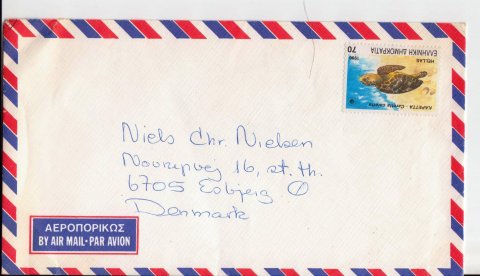 ΕΛΛΗΝΙΚΗ ΔΗΜΟΚΡΑΤΙΑ 70
HELLAS
1990
ΚΑΡΕΤΤΑ - Caretta caretta
Niels Chr. Nielsen
16, st. th.
6705 Esbjerg Ø
Denmark
ΑΕΡΟΠΟΡΙΚΩΣ
BY AIR MAIL • PAR AVION